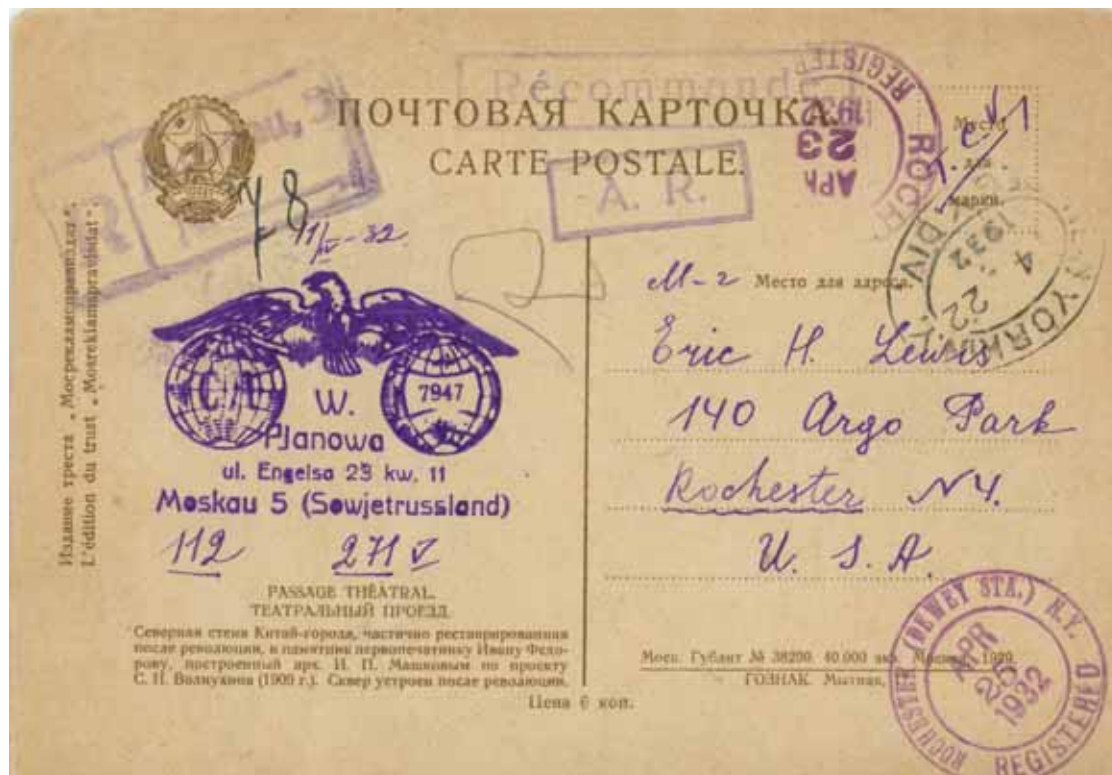 Récommandé
ПОЧТОВАЯ КАРТОЧКА.
CARTE POSTALE.
A. R.
R
REGISTERED
ROCH
APR
23
1932
Место
для
марки.
YORK, N.Y.
DIV.
4
22
1932
78
11/IV-32
Издание треста „Мосрекламсправиздат".
L'édition du trust „Mosreklamspravisdat".
C A
7947
W.
PJanowa
ul. Engelsa 23 kw. 11
Moskau 5 (Sowjetrussland)
112 271 V
PASSAGE THÉATRAL.
ТЕАТРАЛЬНЫЙ ПРОЕЗД.
Северная стена Китай-города, частично реставрированная
после революции, и памятник первопечатнику Ивану Федо-
рову, построенный арх. И. П. Машковым по проекту
С. Н. Волнухина (1909 г.). Сквер устроен после революции.
Цена 6 коп.
М-г Место для адреса.
Eric H. Lewis
140 Argo Park
Rochester NY.
U. S. A.
Мосг. Гублит № 38200. 40.000 экз. 1929.
ГОЗНАК. Мытная,
ROCHESTER (DEWEY STA.) N.Y.
APR
25
1932
REGISTERED